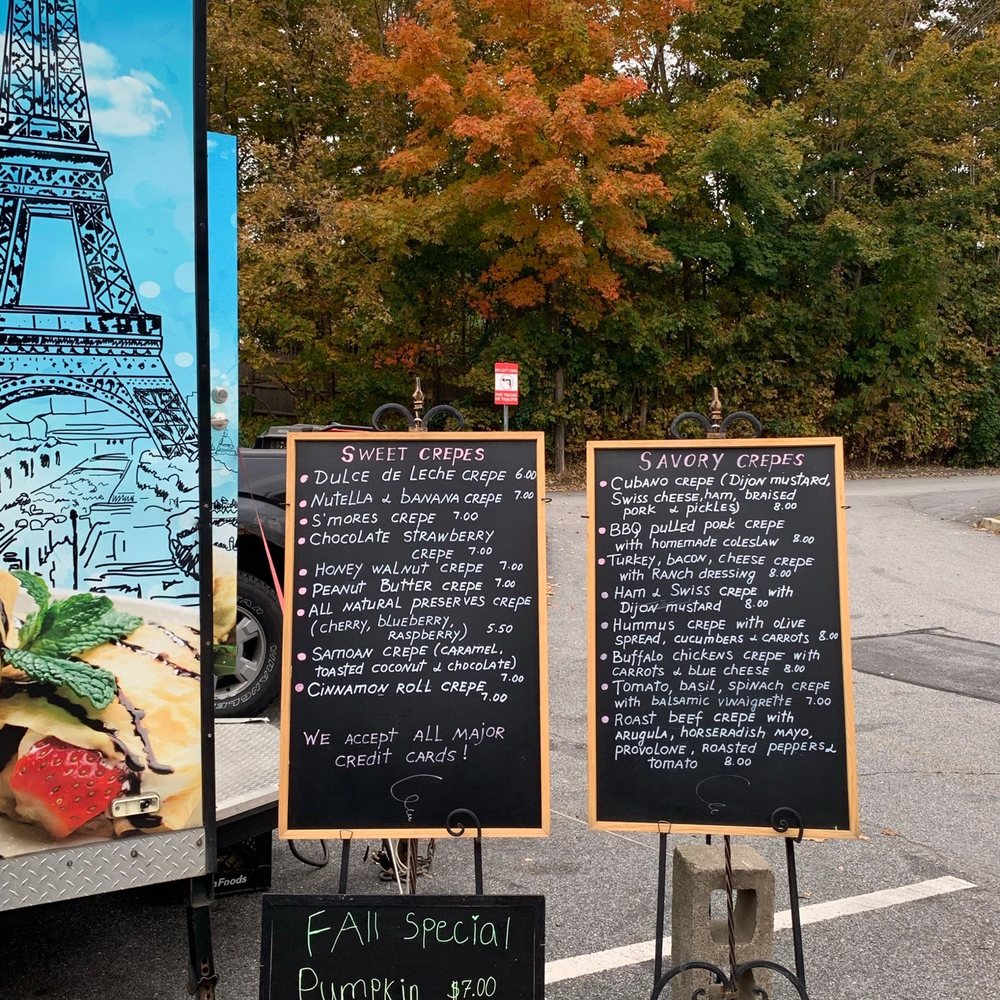 NO LEFT TURN
SWEET CREPES
DULCE DE LECHE CREPE 6.00
NUTELLA & BANANA CREPE 7.00
S'MORES CREPE 7.00
CHOCOLATE STRAWBERRY
CREPE 7.00
HONEY WALNUT CREPE 7.00
PEANUT BUTTER CREPE 7.00
ALL NATURAL PRESERVES CREPE
(CHERRY, BLUEBERRY,
RASPBERRY) 5.50
SAMOAN CREPE (CARAMEL,
TOASTED COCONUT & CHOCOLATE)
7.00
CINNAMON ROLL CREPE
7.00
WE ACCEPT ALL MAJOR
CREDIT CARDS!
SAVORY CREPES
CUBANO CREPE (DIJON MUSTARD,
SWISS CHEESE, HAM, BRAISED
PORK & PICKLES) 8.00
BBQ PULLED PORK CREPE
WITH HOMEMADE COLESLAW 8.00
TURKEY, BACON, CHEESE CREPE
WITH RANCH DRESSING 8.00
HAM & SWISS CREPE WITH
DIJON MUSTARD 8.00
HUMMUS CREPE WITH OLIVE
SPREAD, CUCUMBERS & CARROTS 8.00
BUFFALO CHICKENS CREPE WITH
CARROTS & BLUE CHEESE 8.00
TOMATO, BASIL, SPINACH CREPE
WITH BALSAMIC VINAIGRETTE 7.00
ROAST BEEF CREPE WITH
ARUGULA, HORSERADISH MAYO,
PROVOLONE, ROASTED PEPPERS &
TOMATO 8.00
FAll Special
Pumpkin $7.00